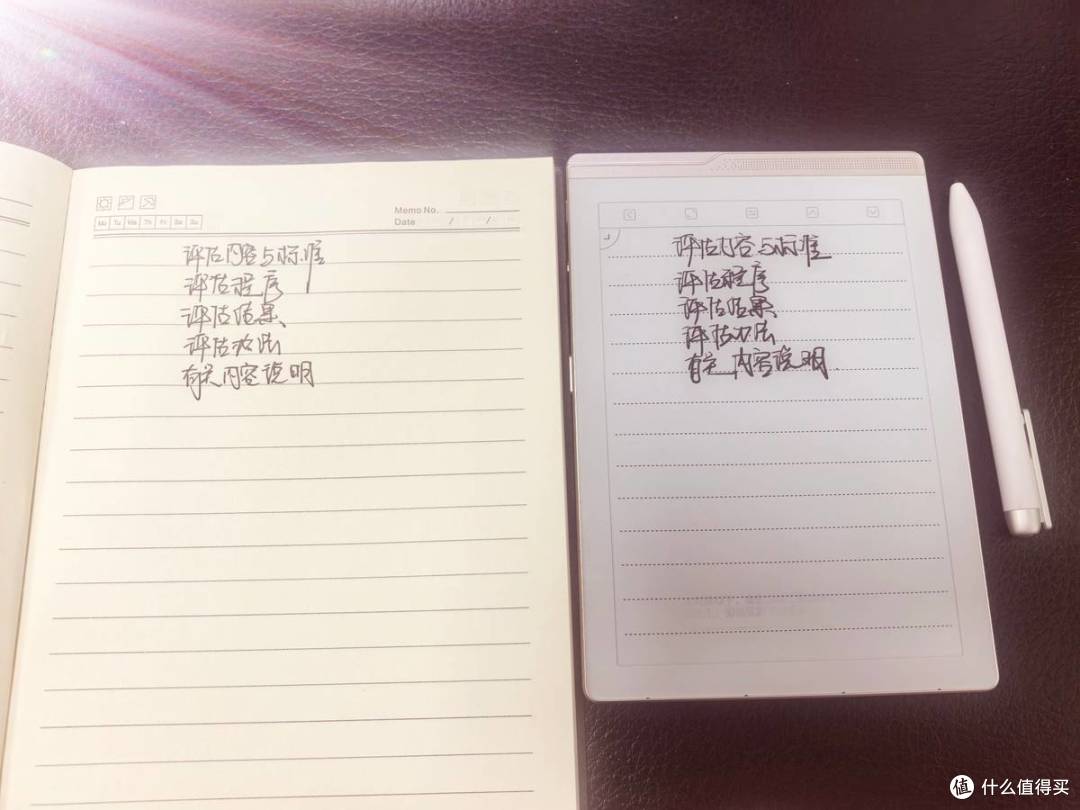 Memo No.
Mo Tu We Th Fr Sa Su
Date / /
评估内容与标准
评估程序
评估结果
评估办法
有关内容说明
评估内容与标准
评估程序
评估结果
评估办法
有关内容说明
值 什么值得买